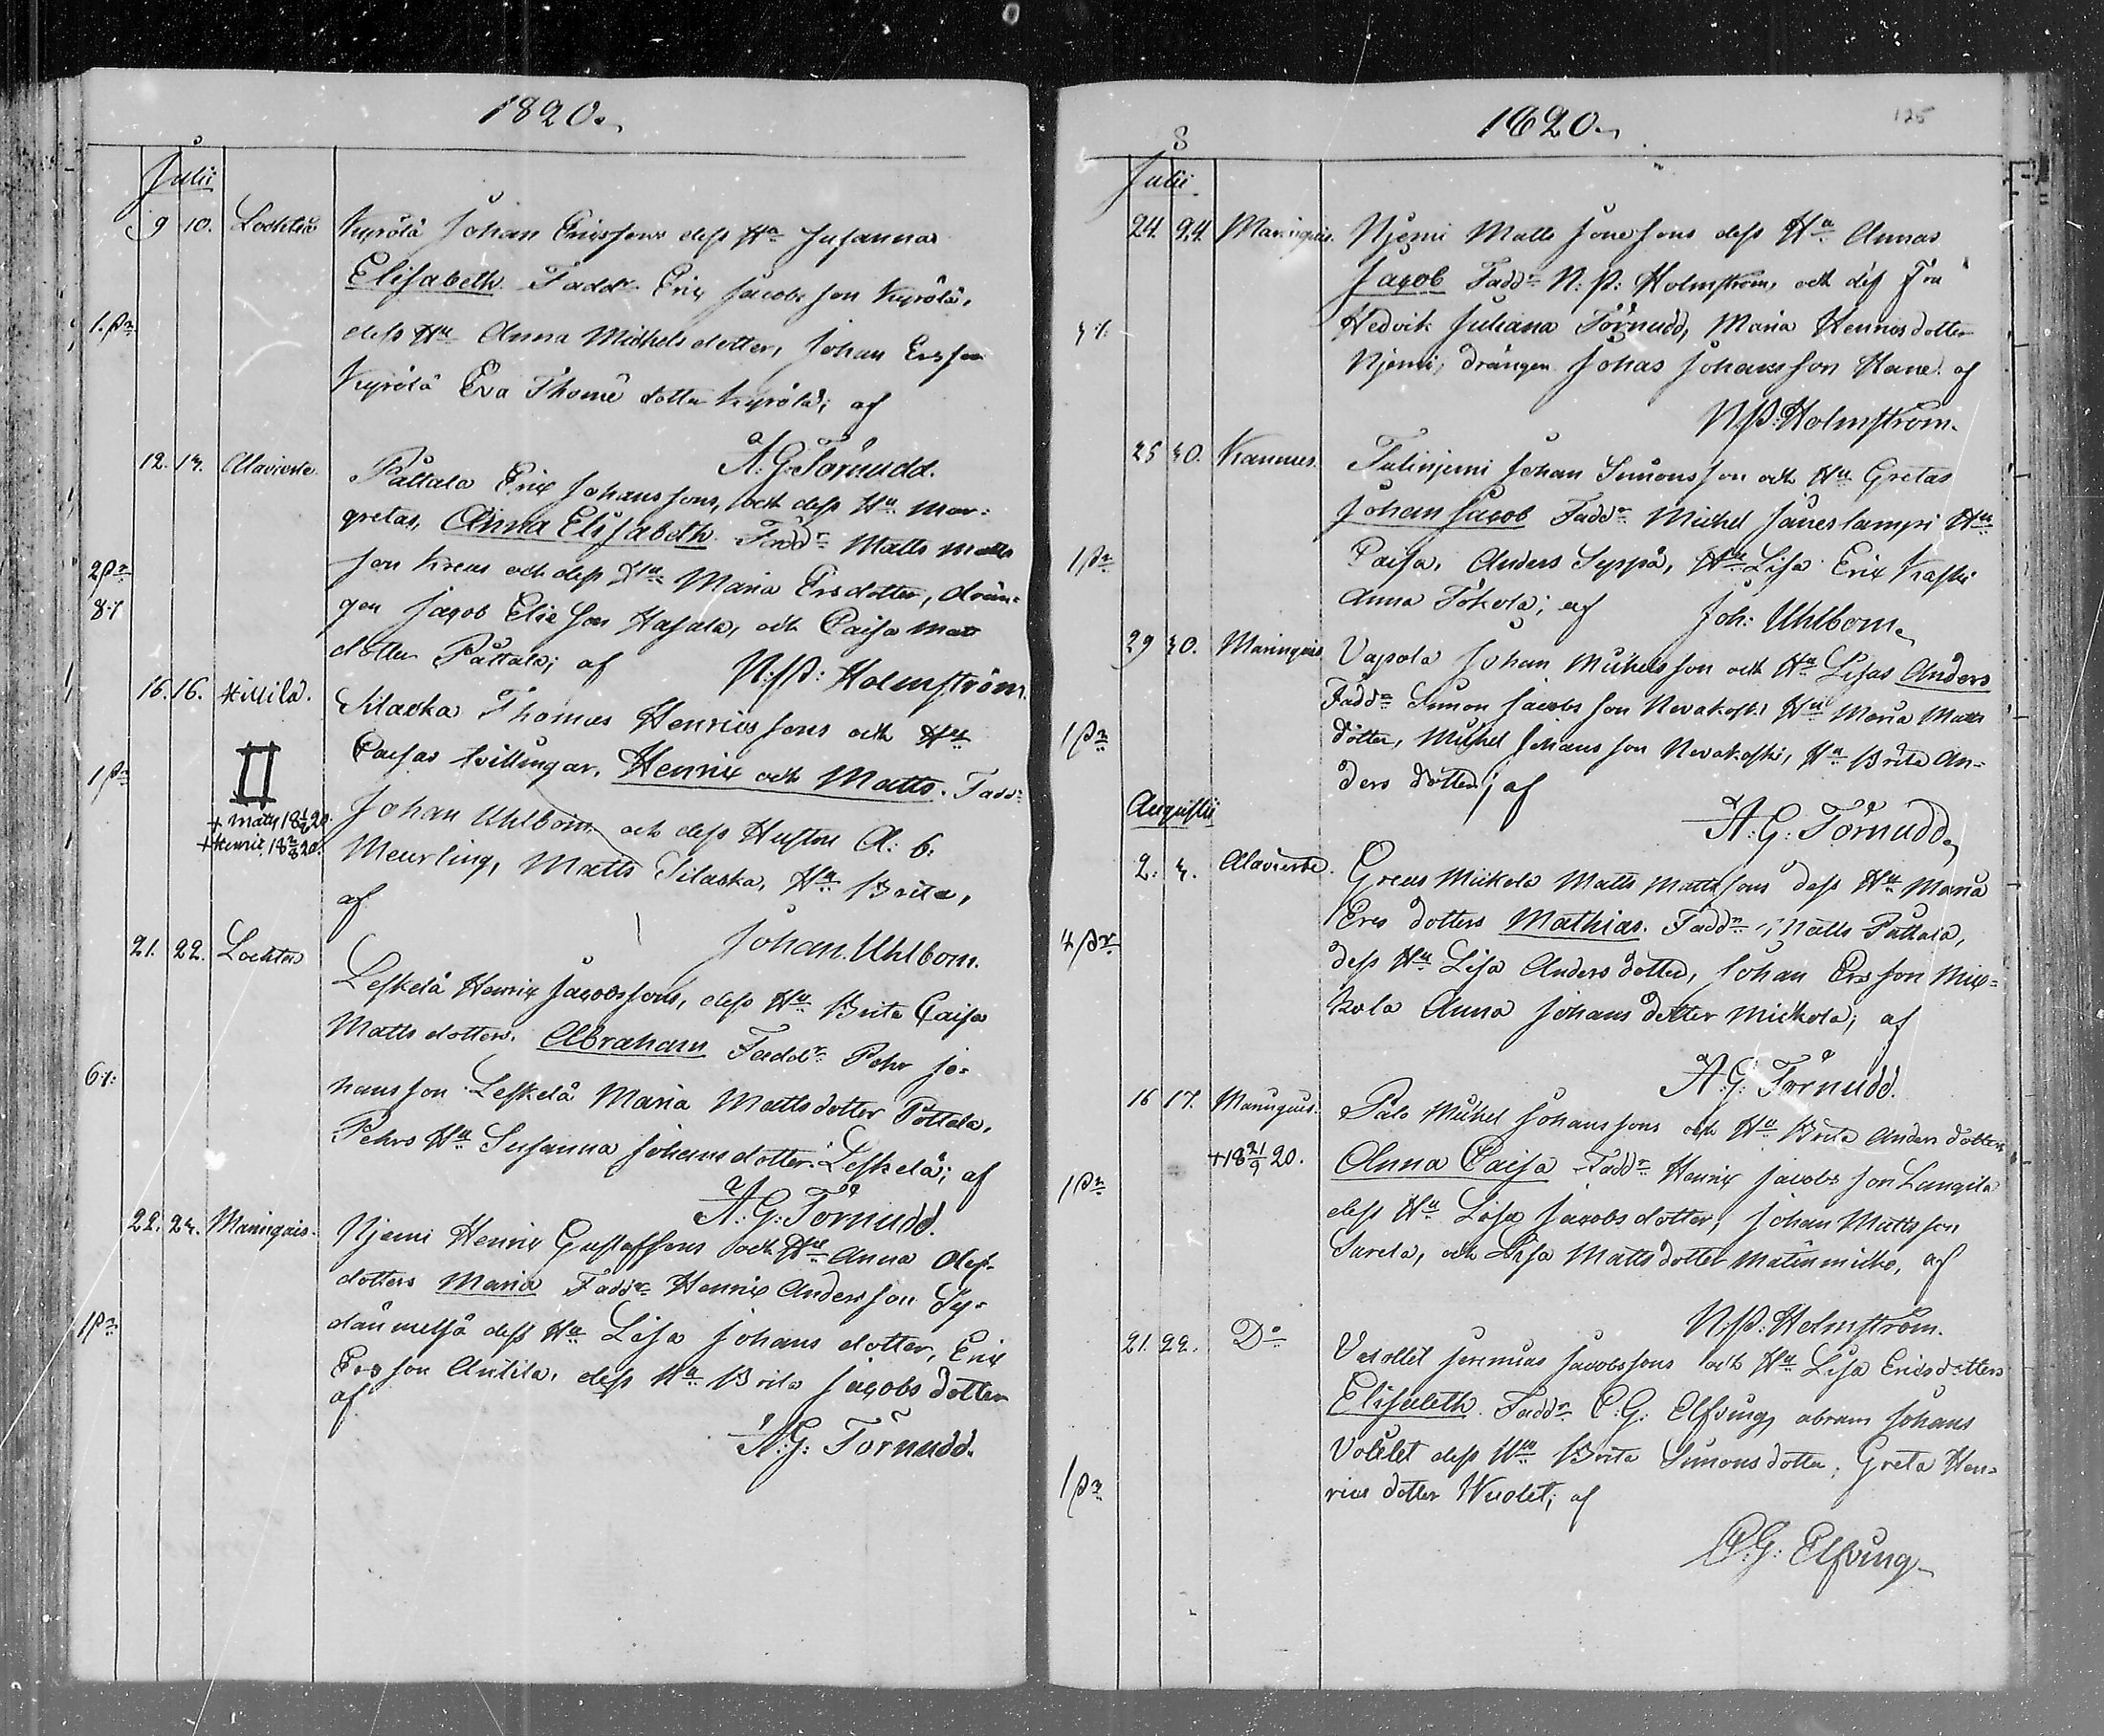 1820.
Julii
9 10. Lochteå Kyrölä Johan Ericssons dess Hu Susannas
Elisabeth. Faddr Eric Jacobsson Kyrölä,
1. pr dess Hu Anna Michelsdotter, Johan Ersson
Kyrölä Eva Thome dotter Kyrölä; af
A. G. Törnudd.
12. 13. Alavieska Påttala Eric Johanssons, och dess Hu Mar-
gretas, Anna Elisabeth. Faddr Matts Matts
2 pr son och dess Hu Maria Ersdotter, drän-
8:1 gen Jacob Elie son Hasala, och Caisa Mats
dotter Påttala; af N: P: Holmström.
16. 16. Hillilä. Silaska Thomas Henricssons och Hu
II Caisas tvillingar, Henric och Matts. Faddr
1 pr Johan Uhlbom och dess Hustru A: b:
+ Matts 18 20.
+ Henric 18 20. Meurling, Matts Silaska, Hu Brita,
af
Johan Uhlbom.
21. 22. Lochteå Leskelä Henric Jacobssons, dess Hu Brita Caisa
Mattsdotters. Abraham Faddr Pehr Jo-
6:1: hansson Leskelä Maria Mattsdotter Pöttala,
Pehrs Hu Susanna Johansdotter Leskelä; af
A. G: Törnudd.
22. 23. Maringais. Njemi Henric Gustafssons och Hu Anna
dotters Maria Faddr Henric Andersson Sy-
1 pr dänmetsä dess Hu Lisa Johans dotter, Eric
Ersson Antila, dess Hu Brita Jacobs dotter
af
A. G: Törnudd.
1820. 125
8
Julii
24. 24. Maringais. Njemi Matts Jonessons dess Hu Annas
Jacob Faddr N: P: Holmström, och dess Fru
31. Hedvik Juliana Törnudd, Maria Henricsdotter
Njemi, drängen Johas Johansson Hane. af
N P: Holmström.
25 30. Kannus. Tulinjemi Johan Simonsson och Hu Gretas
Johan Jacob Faddr Michel Jäneslampi Hu
1 pr Caisa, Anders Seppä, Hu Lisa Eric Kaski
Anna Tokola; af Joh: Uhlbom.
29 30. Maringais Vapola Johan Michelsson och Hu Lisas Anders
Faddr Simon Jacobsson Nevakoski Hu Maria Matts
1 pr dotter, Michel Johansson Nevakoski, Hu Brita An-
ders dotter; af
Augustii A: G: Törnudd.
2. 3. Alavieska. Mickola Matts Mattssons dess Hu Maria
Ers dotters Mathias. Faddr Matts Påttala,
4 pr dess Hu Lisa Andersdotter, Johan Ersson Mic-
kola Anna Johansdotter Mickola; af
A. G: Törnudd.
16 17. Maringais. Palo Michel Johanssons och Hu Brita Anders dotters
+18 21/9 20. Anna Caisa Faddr Henric Jacobsson Langila
1 pr dess Hu Lisa Jacobsdotter, Johan Mattsson
Sarela, och Lisa Mattsdotter, af
N: P: Holmström.
21. 22. Do Jeremias Jacobssons och Hu Lisa Ericsdotters
Elisabeth. Faddr C: G: Elfving, Abram Johans
1 pr dess Hu Brita Simonsdotter, Greta Hen-
rics dotter; af
C: G: Elfving